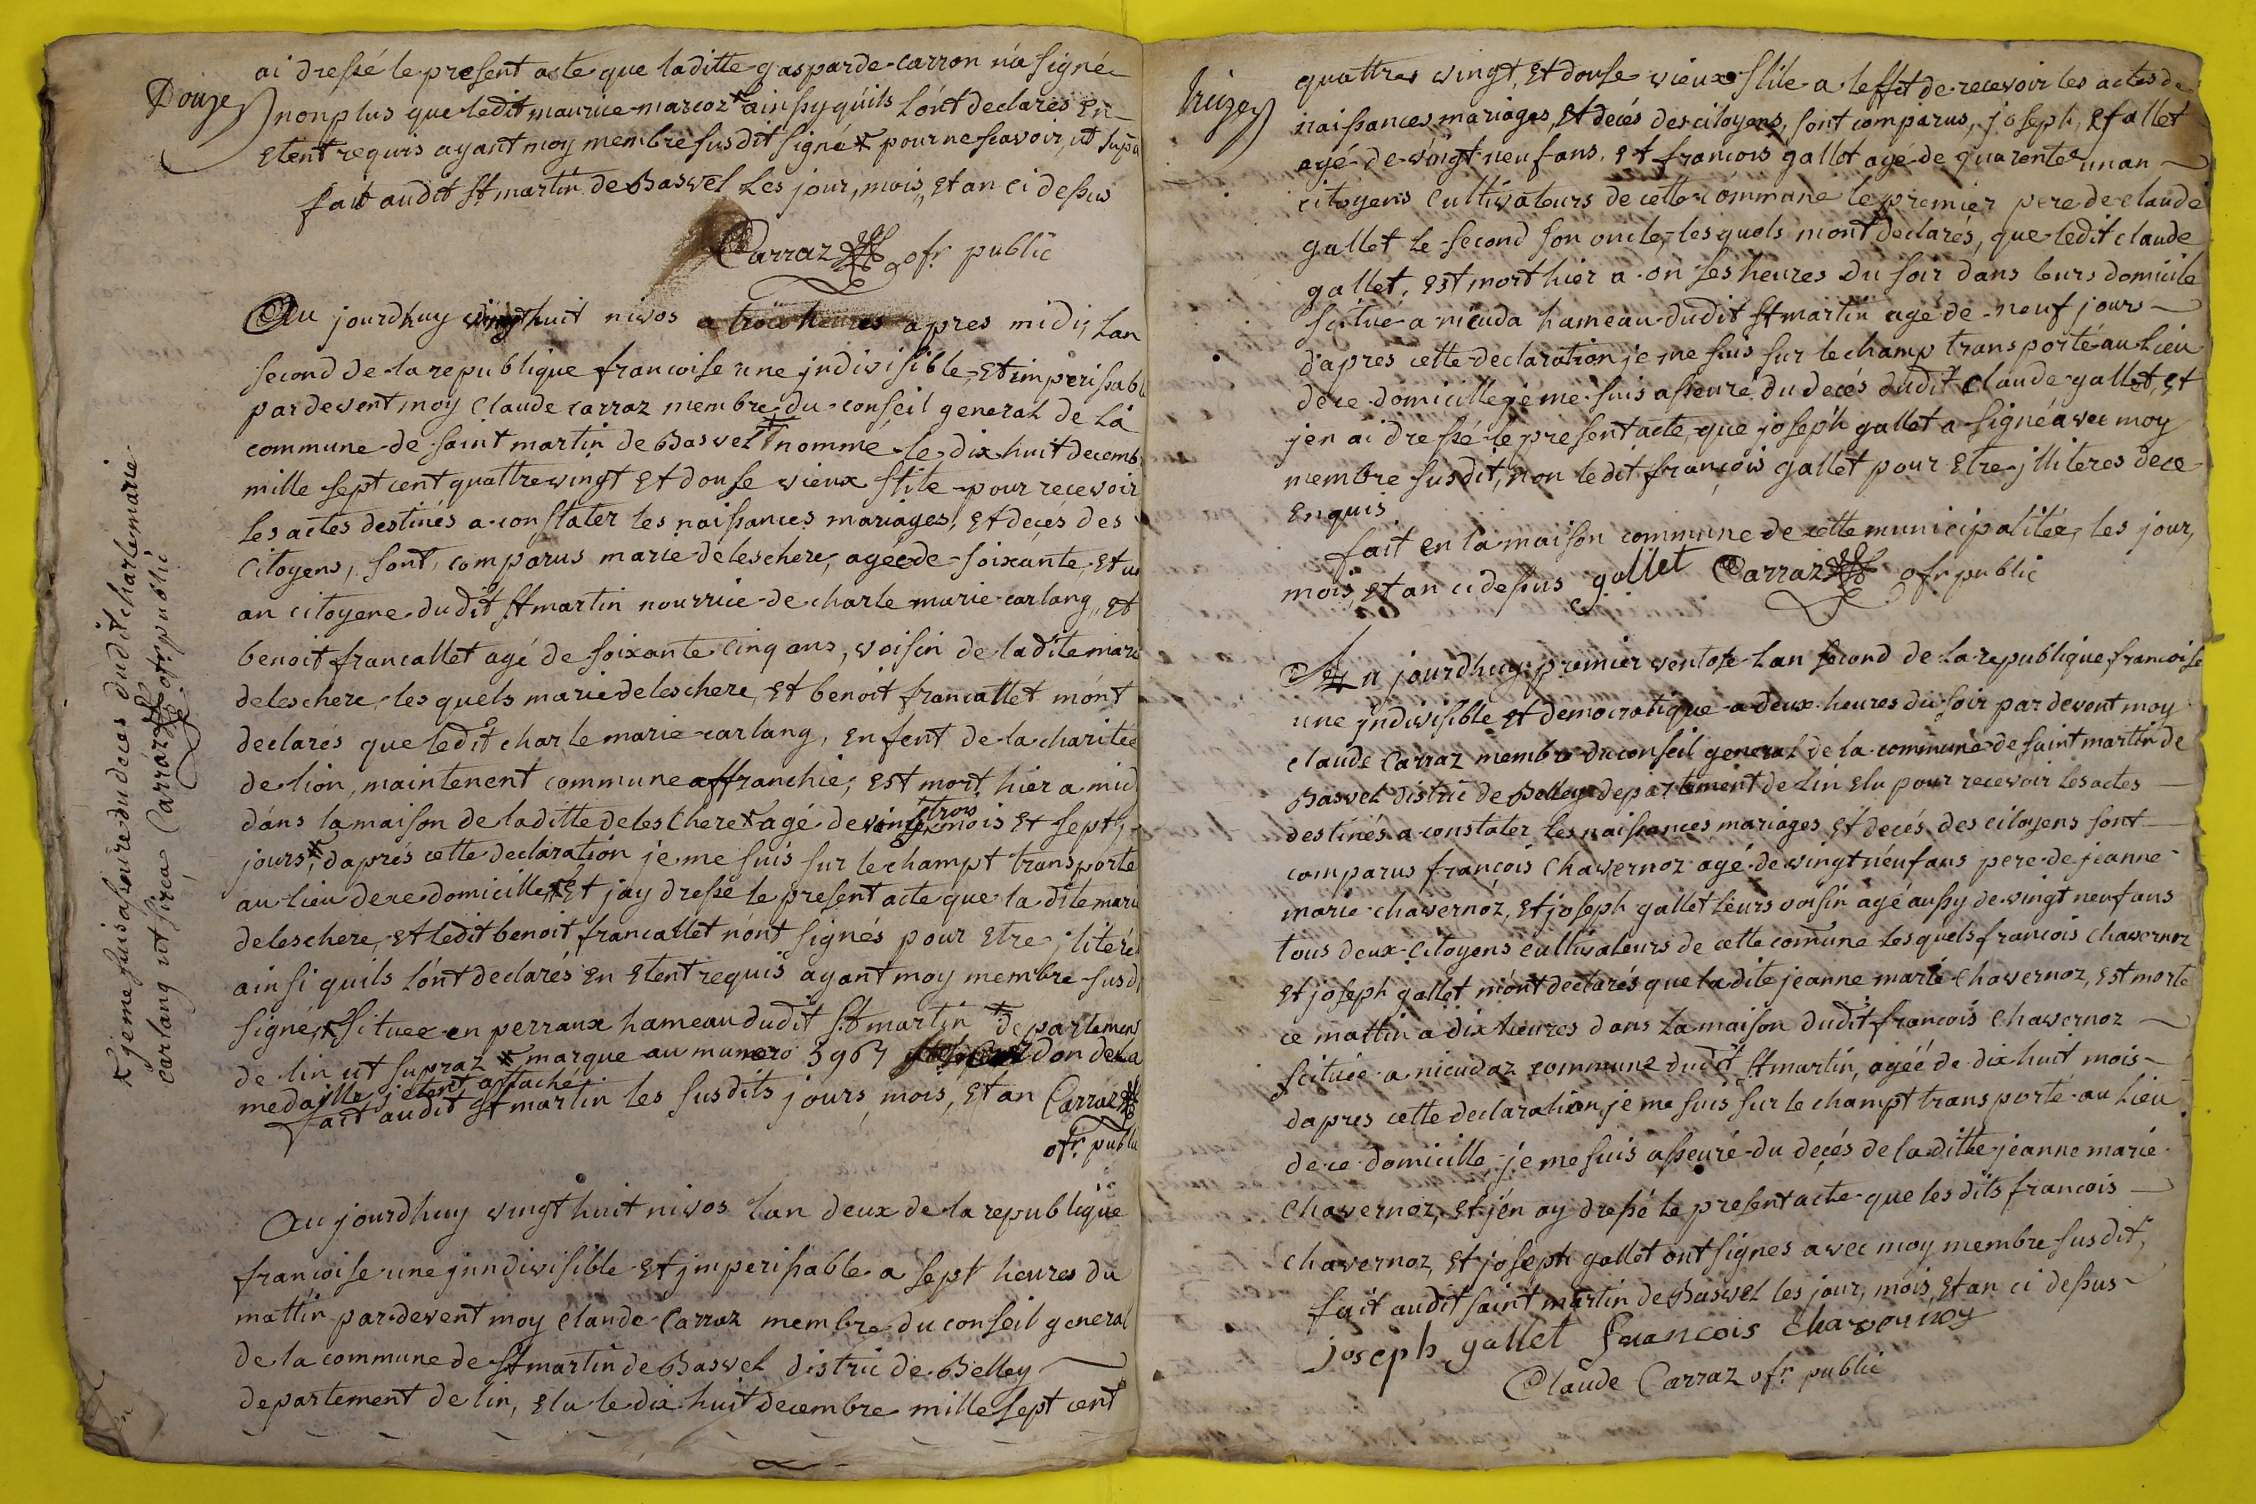 Douze
ai dressé le present acte que laditte gasparde carron n'a signé
non plus que ledit maurice marcoz * ainssy qu'ils l'ont declarés en
etent requis ayant moy membre susdit signé * pour ne scavoir, ut supra
fait audit St martin de Basvel les jour, mois, et an ci dessus
Carraz ofr public
Au jourdhuy vingt huit nivos a trois heures apres midi, Lan
second de la republique francoise une jndivisible, et imperissable
pardevent moy Claude carraz membre du conseil general de La
commune de saint martin de Basvel nommé le dix huit decemb
mille sept cent quattre vingt et douse vieux stile pour recevoir
Les actes destinés a constater les naissances mariages, et decés des
Citoyens, sont comparus marie deleschere, agée de soixante, et un
an citoyene dudit St martin nourrice de charle marie carlang, et
benoit francallet agé de soixante cinq ans, voisin de la dite marie
deleschere, les quels marie deleschere, et benoit francallet m'ont
declarés que ledit charle marie carlang, enfent de la charitee
de lion, maintenent commune affranchie, est mort hier a mid
dans la maison de laditte deleschere * agé de vingt trois mois et sept
jours *, daprés cette declaration je me suis sur le champt transporté
au lieu de ce domicille, * Et jay dressé le present acte que la dite marie
deleschere, et ledit benoit francallet n'ont signés pour etre jliterés
ainsi quils l'ont declarés en etent requis ayant moy membre susdi
signé, * situee en perraux hameau dudit St martin departement
de lin ut supraz * marque au munero 5967 don de la
medaille j etent attaché
fait audit St martin les susdits jours, mois, et an Carraz
ofr public
* je me suis assuré du deces dudit charle marie
carlang ut supra Carraz ofr public
Au jourdhuy vingt huit nivos lan deux de la republique
francoise une jnndivisible et jmperissable a sept heures du
mattin pardevent moy Claude Carraz membre du conseil general
de la commune de St martin de Basvel distric de Belley
departement de lin, elu le dix huit decembre mille sept cent
treize
quattre vingt, et douse vieux stile a leffet de recevoir les actes de
naissances mariages, et decés des citoyens, sont comparus, joseph, gallet
agé de vingt neuf ans, et francois gallet agé de quarente un an
citoyens cultivateurs de cette commune le premier pere de claude
gallet le second son oncle, lesquels m'ont declarés, que ledit claude
gallet, est mort hier a on ses heures du soir dans leurs domicile
scitué a nicuda hameau dudit St martin agé de neuf jours
d'apres cette declaration je me suis sur le champ transporté au lieu
de ce domicille je me suis asseuré du decés dudit claude gallet, et
jen ai dressé le present acte, que joseph gallet a signé avec moy
membre susdit, non ledit françois gallet pour etre jlliteres de ce
enquis
fait en la maison commune de cette municipalitée, les jour,
mois, et an ci dessus gallet Carraz ofr public
Au jourdhuy premier ventose lan second de la republique francoise
une jndivisible et democratique a deux heures du soir pardevent moy
claude Carraz membre du conseil general de la commune de saint martin de
Basvel distric de Belley departement de Lin elu pour recevoir les actes
destinés a constater les naissances mariages et decés des citoyens sont
comparus françois chavernoz agé de vingt neuf ans pere de jeanne
marie chavernoz, et joseph gallet Leurs voisin agé aussy de vingt neuf ans
tous deux citoyens cultivateurs de cette comune Lesquels francois chavernoz
et joseph gallet m'ont declarés que la dite jeanne marie chavernoz, est morte
ce mattin a dix heures dans La maison dudit francois chavernoz
scituée a nicudaz commune dudit St martin, agéé de dix huit mois
dapres cette declaration, je me suis sur le champt transporté au lieu
de ce domicille, je me suis asseuré du deçés de la ditte jeanne marie
chavernoz, et j'en ay dressé le present acte que les dits francois
chavernoz, et joseph gallet ont signes avec moy membre susdit,
fait audit saint martin de Basvel les jour, mois, et an ci dessus
joseph gallet francois chavornoy
Claude Carraz ofr public